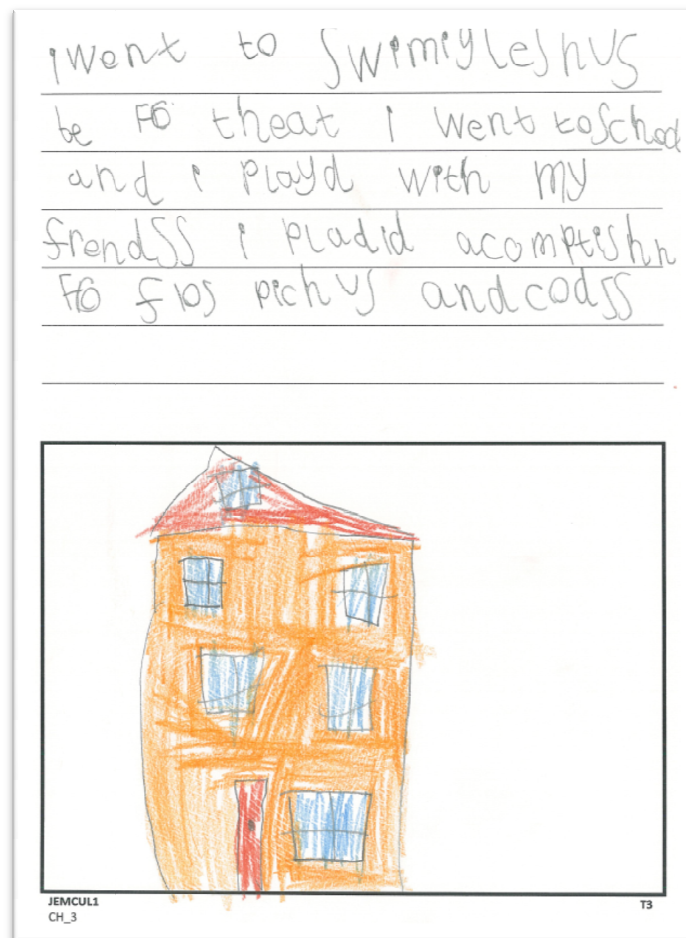 i went to swimiglesnus
be Fo theat i went toschool
and i playd with my
frendss i pladid acomptishn
Fo fips pichus andcodss
JEMCUL1
CH_3
T3